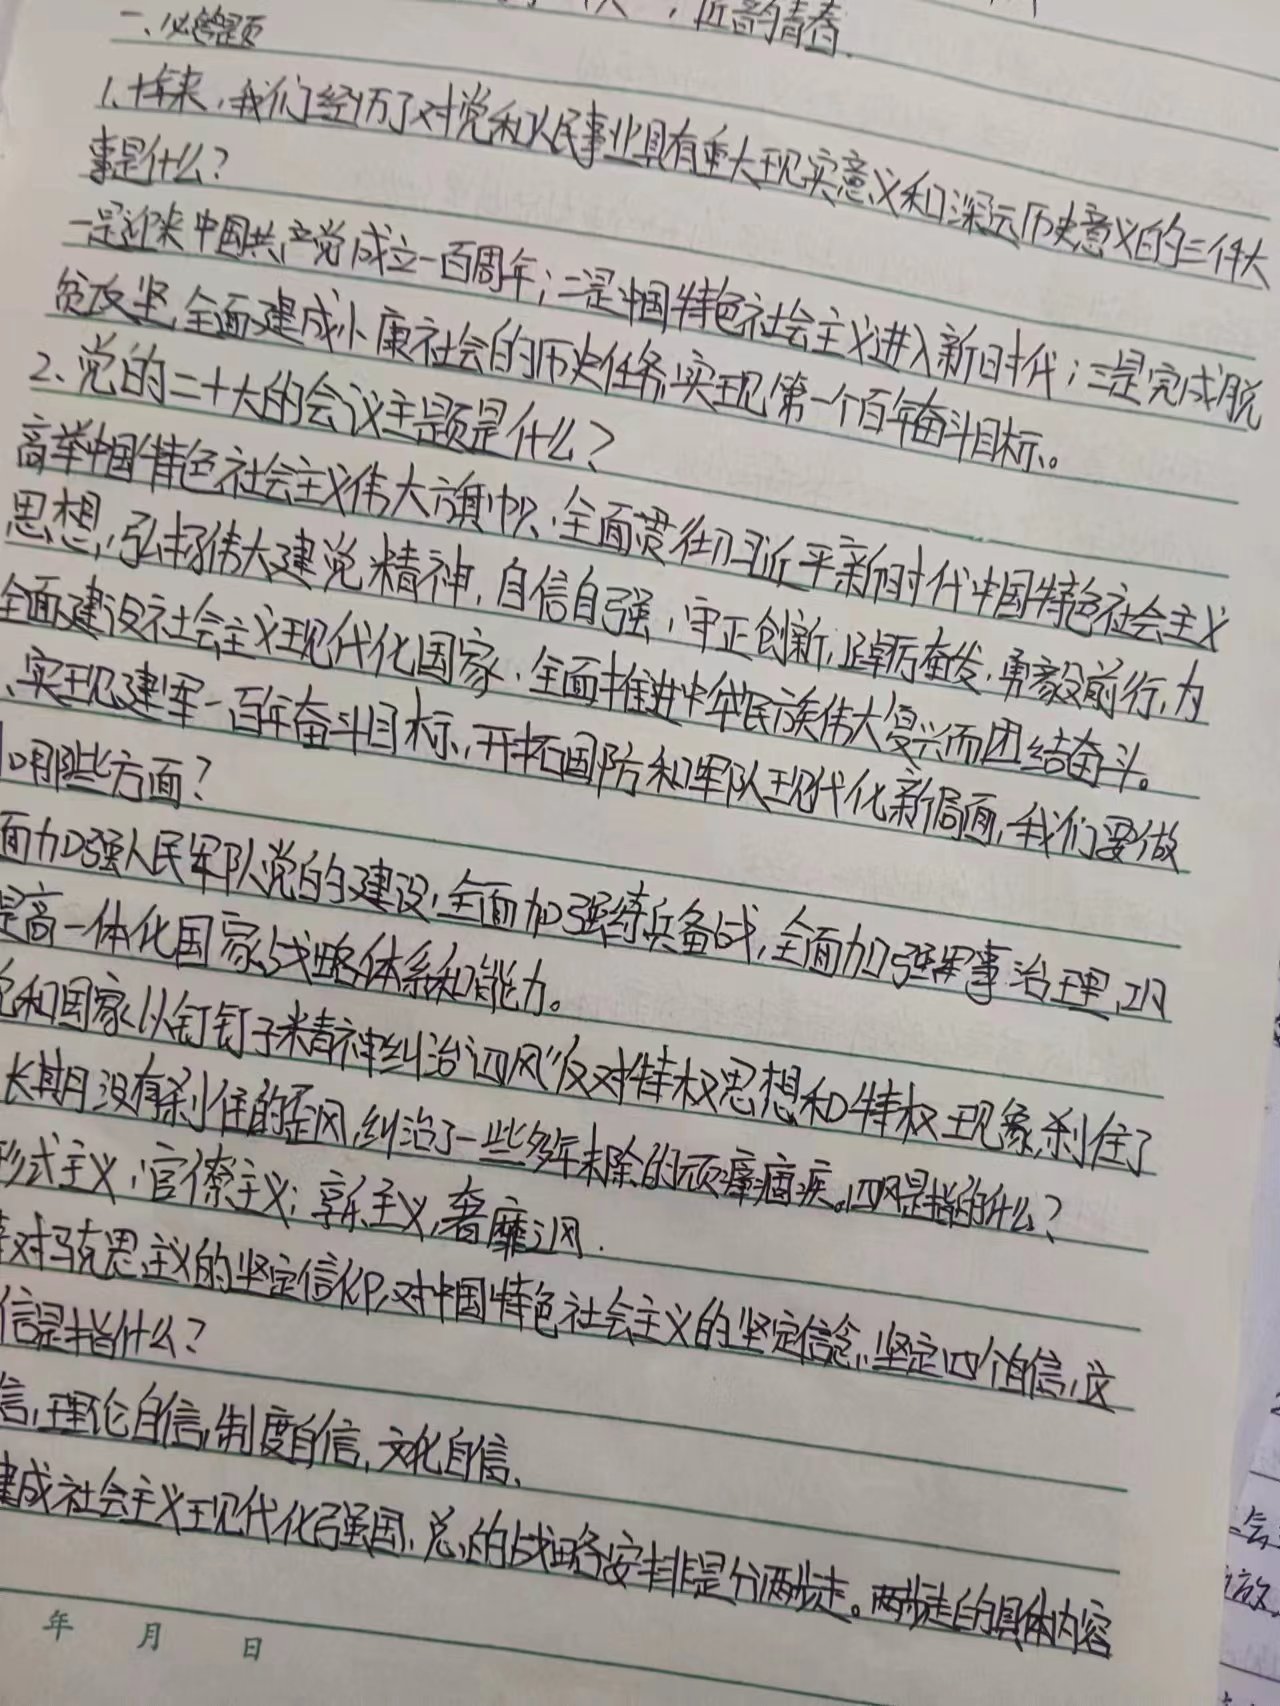 匠韵青春.
一、必答题
1、十年来,我们经历了对党和人民事业具有重大现实意义和深远历史意义的三件大
事是什么?
一是迎来中国共产党成立一百周年;二是中国特色社会主义进入新时代;三是完成脱
贫攻坚,全面建成小康社会的历史任务,实现第一个百年奋斗目标。
2、党的二十大的会议主题是什么?
高举中国特色社会主义伟大旗帜、全面贯彻习近平新时代中国特色社会主义
思想,弘扬伟大建党精神,自信自强,守正创新,踔厉奋发,勇毅前行,为
全面建设社会主义现代化国家、全面推进中华民族伟大复兴而团结奋斗。
、实现建军一百年奋斗目标,开拓国防和军队现代化新局面,我们要做
哪些方面?
面加强人民军队党的建设,全面加强练兵备战,全面加强军事治理,巩
提高一体化国家战略体系和能力。
党和国家以钉钉子精神纠治"四风"反对特权思想和特权现象,刹住了
长期没有刹住的歪风,纠治了一些多年未除的顽瘴痼疾。四风是指的什么?
形式主义,官僚主义;享乐主义,奢靡之风.
对马克思主义的坚定信仰,对中国特色社会主义的坚定信念,坚定四个自信,这
信是指什么?
信,理论自信,制度自信,文化自信、
建成社会主义现代化强国,总的战略安排是分两步走。两步走的具体内容
年 月 日